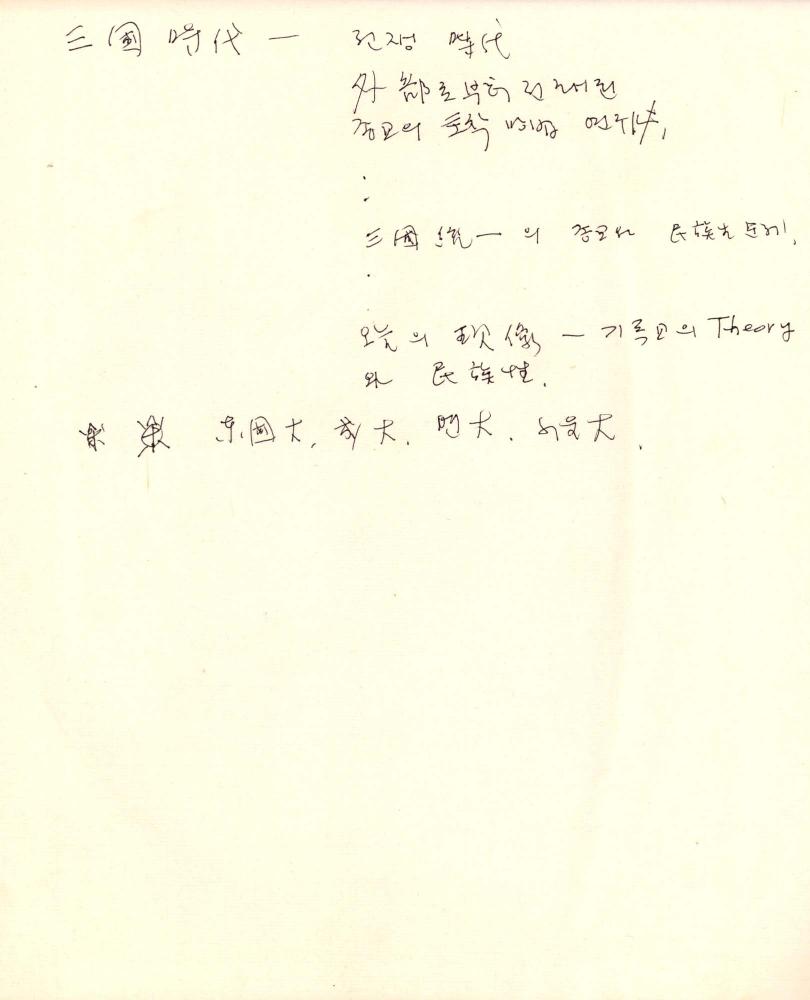 三國時代 — 전쟁 時代
外部로부터 전래된
종교의 토착
三國統一의 종교와 民族의 문제,
오늘의 現像 — 기독교의 Theory
와 民族性.
東國大, 成大, 延大, 외국大.